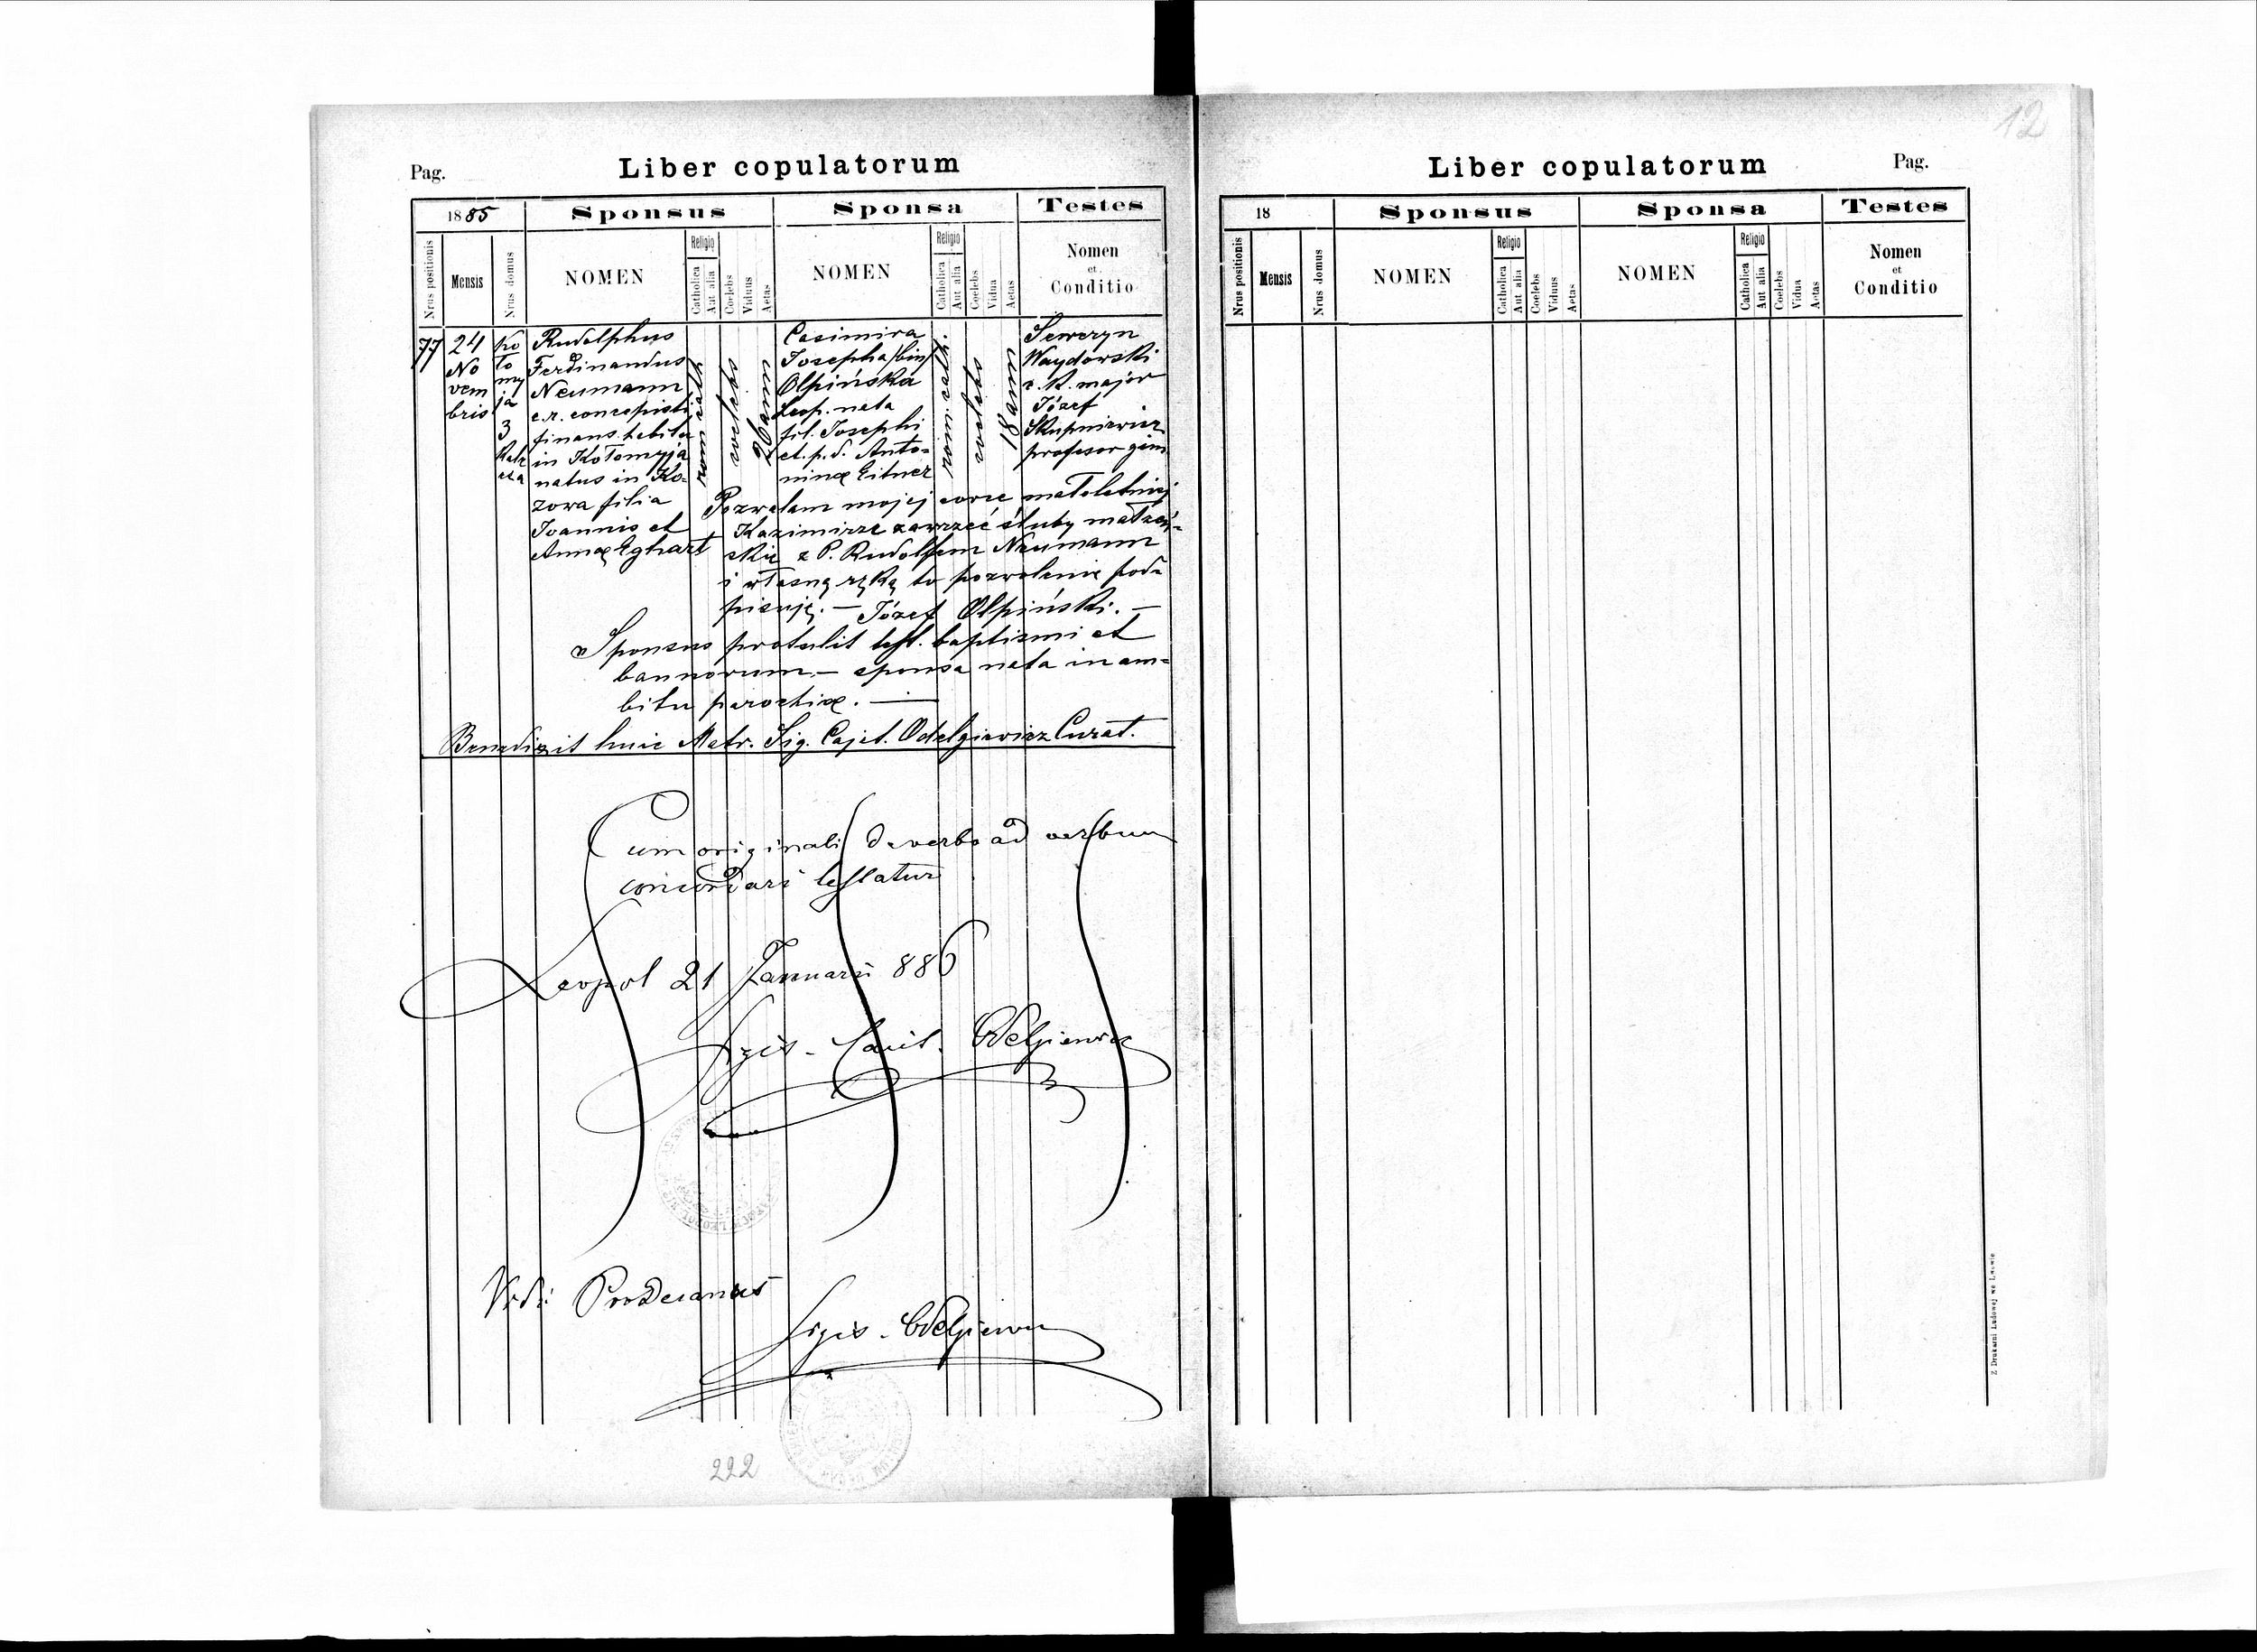 Pag.
Liber copulatorum
1885
Sponsus
Sponsa
Testes
Nrus positionis
Mensis
Nrus domus
NOMEN
Religio
Catholica
Aut alia
Coelebs
Viduus
Aetas
NOMEN
Religio
Catholica
Aut alia
Coelebs
Vidua
Aetas
Nomen
et
Conditio
77
24
No
vem
bris
Ko
ło
my
ja
3
Rudolphus
Ferdinandus
Neumann
c.r. concepista
finans. habita
in Kołomyja
natus in Ko-
zowa filia
Joannis et
Annæ Eghart
rom cath
coelebs
26 ann
Casimira
Josepha /bin/
Olpińska
Leop. nata
fil. Josephi
et. p. d. Anto-
ninæ Eitner
rom. cath.
coelebs
18 ann
Seweryn
Waydowski
c. k. major
Józef
Skupniewicz
profesor gim
Pozwalam mojej corce małoletniej
Kazimirze zawrzeć śluby małżeń-
skie z P. Rudolfem Neumann
i własną ręką to pozwolenie pod-
pisuję. — Józef Olpiński. —
Sponsus protulit test. baptismi et
bannorum — sponsa nata in am-
bitu parochiæ. —
Benedixit huic Matr. Sig. Cajet. Odelgiewicz Curat.
Cum originali de verbo ad verbum
concordari testatur
Leopol 21 Januarii 886
Sigis. Cait. Odelgiewicz
Vidi: Prodecanus
Sigis. Odelgiewicz
222
12
Liber copulatorum
Pag.
18
Sponsus
Sponsa
Testes
Nrus positionis
Mensis
Nrus domus
NOMEN
Religio
Catholica
Aut alia
Coelebs
Viduus
Aetas
NOMEN
Religio
Catholica
Aut alia
Coelebs
Vidua
Aetas
Nomen
et
Conditio
Z Drukarni Ludowej we Lwowie